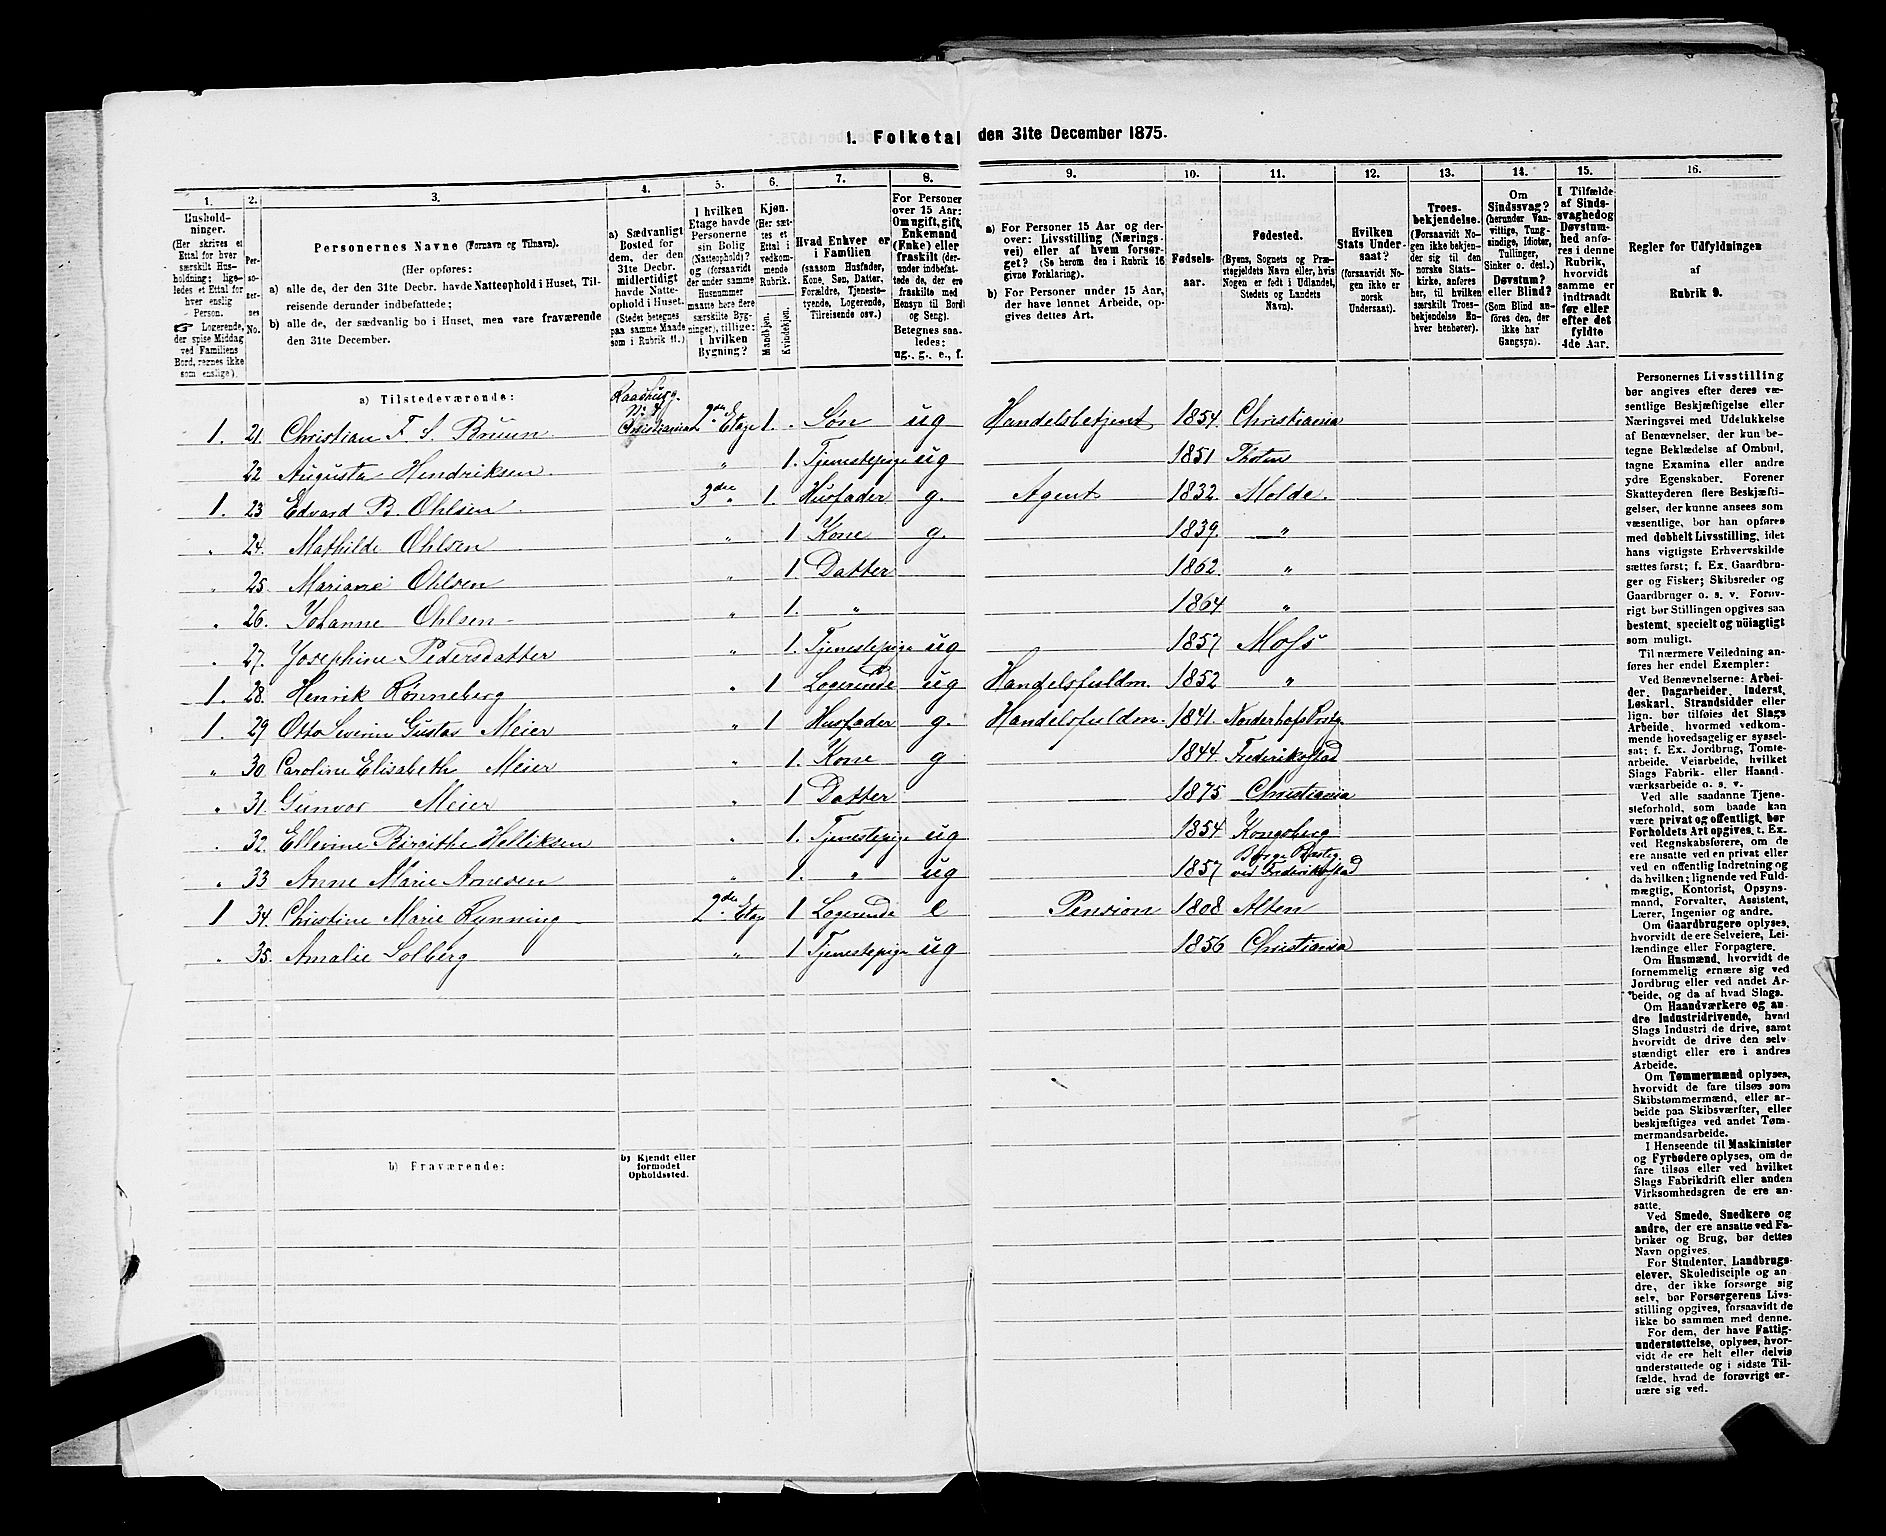 1. Folketal den 31te December 1875.
1. 2. 3. 4. 5. 6. 7. 8. 9. 10. 11. 12. 13. 14. 15. 16.
Husholdninger.
(Her skrives et
Ettal for hver
særskilt Husholdning;
ligeledes
et Ettal for
hver enslig
Person.
☞ Logerende,
der spise Middag
ved Familiens
Bord, regnes ikke
som enslige).
Personernes
No.
Personernes Navne (Fornavn og Tilnavn).
(Her opføres:
a) alle de, der den 31te Decbr. havde Natteophold i Huset, Tilreisende
derunder indbefattede;
b) alle de, der sædvanlig bo i Huset, men vare fraværende
den 31te December.
a) Sædvanligt
Bosted for
dem, der den
31te Decbr.
midlertidigt
havde Natteophold
i Huset.
(Stedet betegnes
paa samme Maade
som i Rubrik 11.)
I hvilken
Etage havde
Personerne
sin Bolig
(Natteophold)?
og (forsaavidt
der under samme
Husnummer
maatte være flere
særskilte Bygninger),
tillige:
i hvilken
Bygning?
Kjøn.
(Her sættes
et
Ettal i
vedkommende
Rubrik.
Mandkjøn.
Kvindekjøn.
Hvad Enhver er
i Familien
(saasom Husfader,
Kone, Søn, Datter,
Forældre, Tjenestetyende,
Logerende,
Tilreisende osv.)
For Personer
over 15 Aar:
Om ugift, gift,
Enkemand
(Enke) eller
fraskilt (derunder
indbefattede
de, der ere
fraskilte med
Hensyn til Bord
og Seng).
Betegnes saaledes:
ug., g., e., f.
a) For Personer 15 Aar og derover:
Livsstilling (Næringsvei)
eller af hvem forsørget?
(Se herom den i Rubrik 16
givne Forklaring).
b) For Personer under 15 Aar,
der have lønnet Arbeide, opgives
dettes Art.
Fødselsaar.
Fødested.
(Byens, Sognets og Præstegjeldets
Navn eller, hvis
Nogen er født i Udlandet,
Stedets og Landets
Navn).
Hvilken
Stats Undersaat?
(forsaavidt Nogen
ikke er
norsk
Undersaat).
Troesbekjendelse.
(Forsaavidt Nogen
ikke bekjender
sig til den
norske Statskirke,
anføres
her, til hvilken
særskilt Troesbekjendelse
Enhver
henhører).
Om
Sindssvag?
(herunder Vanvittige,
Tungsindige,
Idioter,
Tullinger,
Sinker o. desl.)
Døvstum?
eller Blind?
(Som Blind anføres
den, der
ikke har
Gangsyn).
I Tilfælde
af Sindssvaghed
og
Døvstumhed
anføres
i denne
Rubrik,
hvorvidt
samme er
indtraadt
før eller
efter det
fyldte
4de Aar.
Regler for Udfyldningen
af
Rubrik 9.
a) Tilstedeværende:
1. 21. Christian F. S. Bruun Raadhusg. No 7 Christiania 2den Etage 1. Søn ug Handelsbetjent 1854. Christiania
22 Augusta Hendriksen " 1. Tjenestepige ug 1851 Thoten
1. 23 Edvard B. Ohlsen 3die " 1. Husfader g. Agent 1832. Molde.
" 24. Mathilde Ohlsen " 1 Kone g. 1839. "
" 25. Mariane Ohlsen " 1. Datter 1862. "
" 26. Johanne Ohlsen " 1. " 1864 "
" 27. Josephine Pedersdatter " 1. Tjenestepige ug 1857 Moss
1. 28. Henrik Rønneberg " 1 Logerende ug Handelsfuldm. 1852 "
1. 29 Otto Severin Gustav Meier " 1 Husfader g. Handelsfuldm. 1841. Norderhofs Præstg.
" 30. Caroline Elisabeth Meier " 1. Kone g 1844. Frederikstad
" 31. Gunvor Meier " 1 Datter 1875 Christiania
" 32. Ellevine Birgithe Helliksen " 1. Tjenestepige ug 1854 Kongsberg
" 33 Anne Marie Arnesen " 1. " ug 1857 Borge Præsteg. ved Frederikstad
1 34. Christine Marie Rynning 2den Etage 1 Logerende e Pension 1808 Alten
" 35. Amalie Solberg " 1 Tjenestepige ug 1856 Christiania
b) Fraværende:
b) Kjendt eller
formodet
Opholdssted.
Personernes Livsstilling
bør angives efter deres væsentlige
Beskjæftigelse eller
Næringsvei med Udelukkelse
af Benævnelser, der kun betegne
Beklædelse af Ombud,
tagne Examina eller andre
ydre Egenskaber. Forener
Skatteyderen flere Beskjæftigelser,
der kunne ansees som
væsentlige, bør han opføres
med dobbelt Livsstilling, idet
hans vigtigste Erhvervskilde
sættes først; f. Ex. Gaardbruger
og Fisker; Skibsreder og
Gaardbruger o. s. v. Forøvrigt
bør Stillingen opgives saa
bestemt, specielt og nöiagtigt
som muligt.
Til nærmere Veiledning anføres
her endel Exempler:
Ved Benævnelserne: Arbeider,
Dagarbeider, Inderst,
Løskarl, Strandsidder eller
lign. bør tilføies det Slags
Arbeide, hvormed vedkommende
hovedsagelig er sysselsat;
f. Ex. Jordbrug, Tomtearbeide,
Veiarbeide, hvilket
Slags Fabrik- eller Haandværksarbeide
o. s. v.
Ved alle saadanne Tjenesteforhold,
som baade kan
være privat og offentligt, bør
Forholdets Art opgives, t. Ex.
ved Regnskabsførere, om de
ere ansatte ved en privat eller
ved en offentlig Indretning og
da hvilken; lignende ved Fuldmægtig,
Kontorist, Opsynsmand,
Forvalter, Assistent,
Lærer, Ingeniør og andre.
Om Gaardbrugere oplyses,
hvorvidt de ere Selveiere, Leilændinge
eller Forpagtere.
Om Husmænd, hvorvidt de
fornemmelig ernære sig ved
Jordbrug eller ved andet Arbeide,
og da af hvad Slags.
Om Haandværkere og andre
Industridrivende, hvad
Slags Industri de drive, samt
hvorvidt de drive den selvstændigt
eller ere i andres
Arbeide.
Om Tømmermænd oplyses,
hvorvidt de fare tilsøs som
Skibstømmermænd, eller arbeide
paa Skibsværfter, eller
beskjæftiges ved andet Tømmermandsarbeide.
I Henseende til Maskinister
og Fyrbødere oplyses, om de
fare tilsøs eller ved hvilket
Slags Fabrikdrift eller anden
Virksomhedsgren de ere ansatte.
Ved Smede, Snedkere og
andre, der ere ansatte ved Fabriker
og Brug, bør dettes
Navn opgives.
For Studenter, Landbrugselever,
Skoledisciple og andre,
der ikke forsørge sig
selv, bør Forsørgerens Livsstilling
opgives, forsaavidt de
ikke bo sammen med denne.
For dem, der have Fattigunderstøttelse,
oplyses, hvorvidt
de ere helt eller delvis
understøttede og i sidste Tilfælde,
hvad de forøvrigt ernære
sig ved.